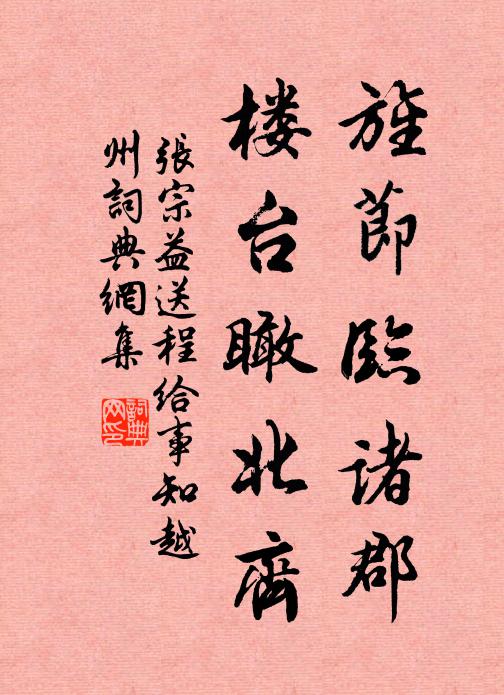 旌節臨諸郡
楼台瞰北齋
張宗益送程給事知越
州詞典網集
詞典
网印